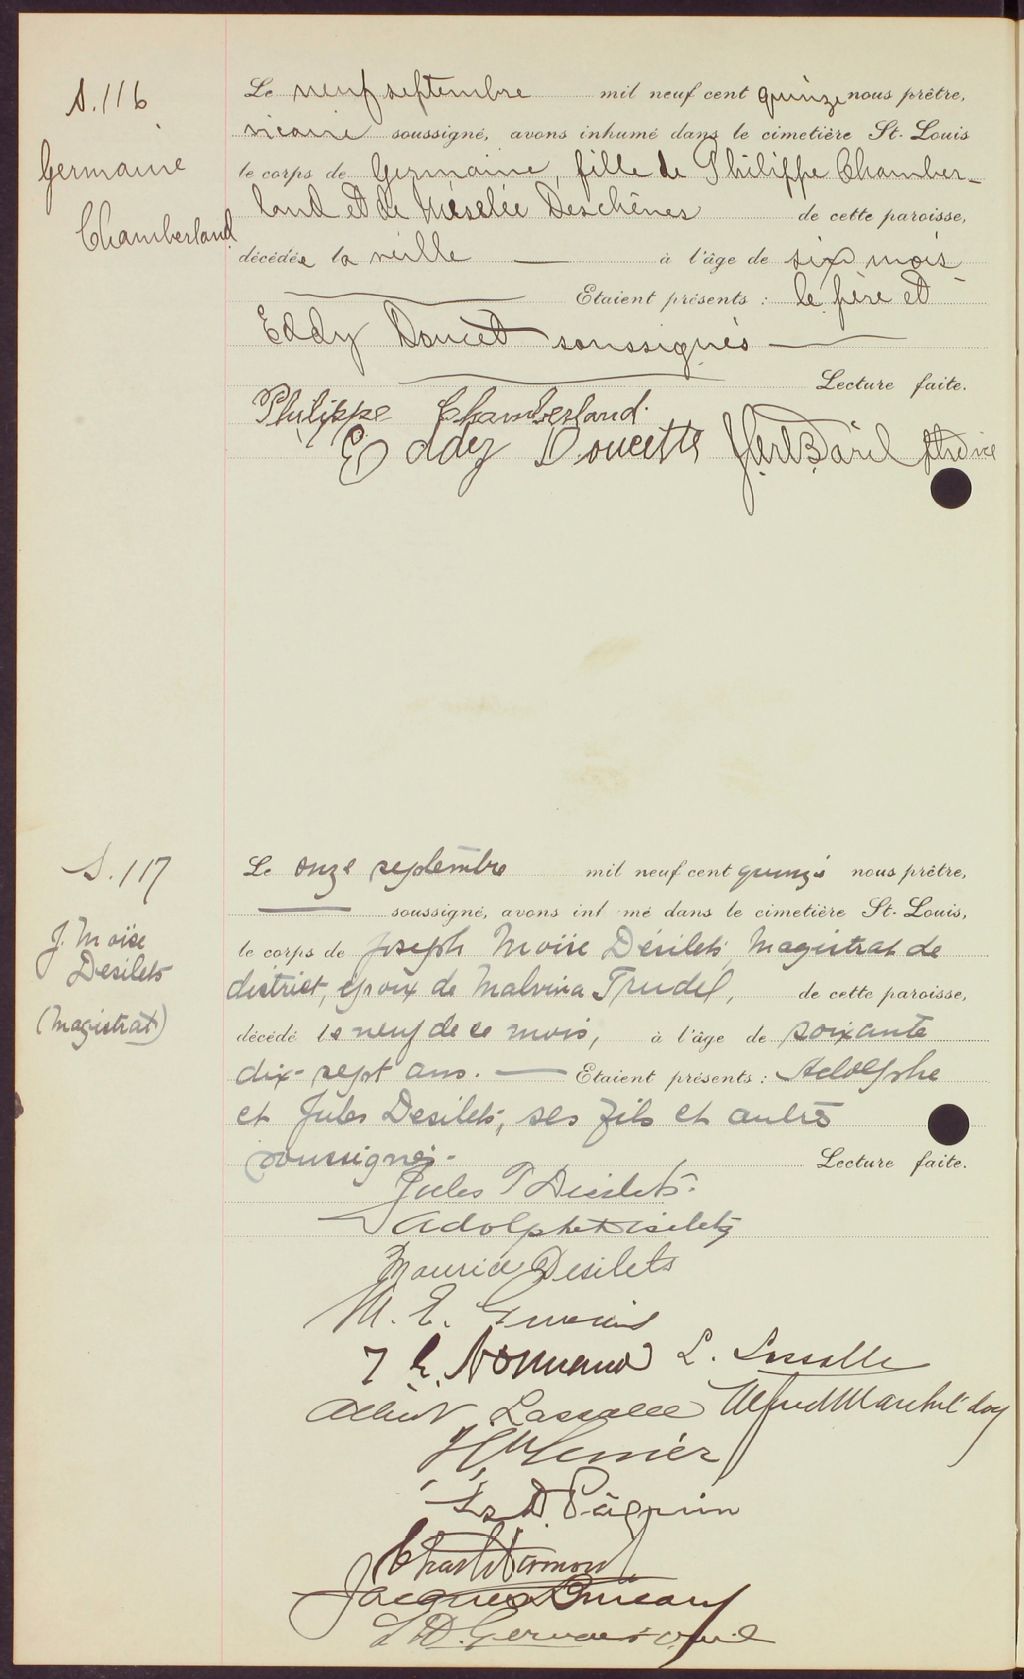 S. 116
Germaine
Chamberland
Le neuf septembre mil neuf cent quinze nous prêtre,
vicaire soussigné, avons inhumé dans le cimetière St-Louis
le corps de Germaine, fille de Philippe Chamber-
land et de Deschênes de cette paroisse,
décédée la veille à l'âge de six mois
Etaient présents : le père et
Eddy Doucet soussignés
Lecture faite.
Philippe Chamberland.
Eddez Doucette Baril
S. 117
J. Moïse
Desilets
(Magistrat)
Le onze septembre mil neuf cent quinze nous prêtre,
soussigné, avons inhumé dans le cimetière St-Louis,
le corps de Joseph Moïse Désilets, Magistrat de
district, époux de Malvina Trudel, de cette paroisse,
décédé le neuf de ce mois, à l'âge de soixante
dix-sept ans. Etaient présents : Adolphe
et Jules Desilets, ses fils et autres
soussignés.
Lecture faite.
Jules T Desilets.
Adolphe Desilets
Maurice Desilets
M. E.
Normand L. Lassalle
Albert Lassalle Alfred
L. D. Paquin
Jacques Bureau
Gervais